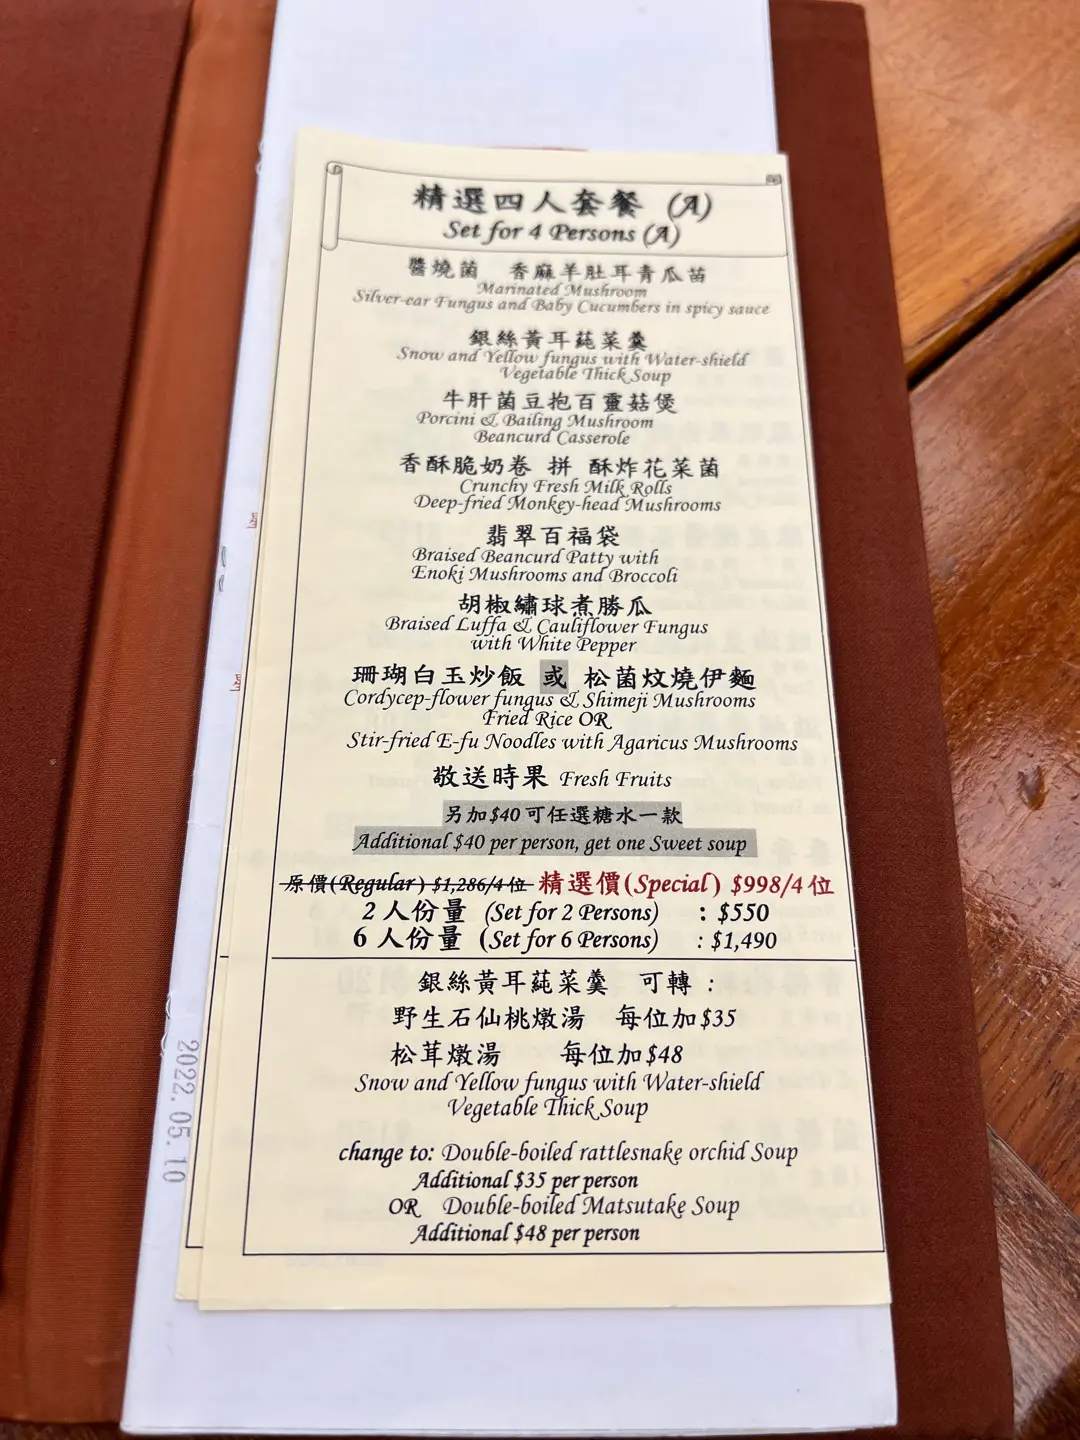 精選四人套餐 (A)
Set for 4 Persons (A)
醬燒菌 香麻羊肚耳青瓜苗
Marinated Mushroom
Silver-ear Fungus and Baby Cucumbers in spicy sauce
銀絲黃耳蒓菜羹
Snow and Yellow fungus with Water-shield
Vegetable Thick Soup
牛肝菌豆抱百靈菇煲
Porcini & Bailing Mushroom
Beancurd Casserole
香酥脆奶卷 拼 酥炸花菜菌
Crunchy Fresh Milk Rolls
Deep-fried Monkey-head Mushrooms
翡翠百福袋
Braised Beancurd Patty with
Enoki Mushrooms and Broccoli
胡椒繡球煮勝瓜
Braised Luffa & Cauliflower Fungus
with White Pepper
珊瑚白玉炒飯 或 松菌炆燒伊麵
Cordycep-flower fungus & Shimeji Mushrooms
Fried Rice OR
Stir-fried E-fu Noodles with Agaricus Mushrooms
敬送時果 Fresh Fruits
另加$40可任選糖水一款
Additional $40 per person, get one Sweet soup
原價(Regular) $1,286/4位 精選價(Special) $998/4位
2人份量 (Set for 2 Persons) : $550
6人份量 (Set for 6 Persons) : $1,490
銀絲黃耳蒓菜羹 可轉 :
野生石仙桃燉湯 每位加$35
松茸燉湯 每位加$48
Snow and Yellow fungus with Water-shield
Vegetable Thick Soup
change to: Double-boiled rattlesnake orchid Soup
Additional $35 per person
OR Double-boiled Matsutake Soup
Additional $48 per person
2022.05.10